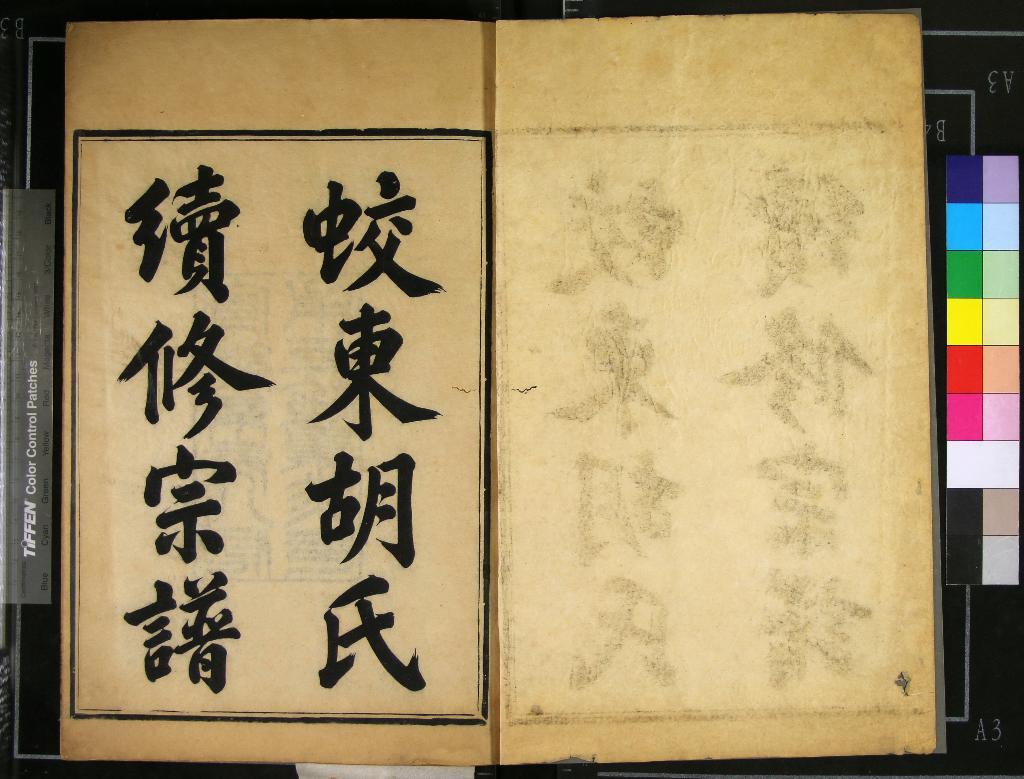 蛟東胡氏
續修宗譜
TIFFEN Color Control Patches
Blue Cyan Green Yellow Red Magenta White 3/Color Black
A3
B4
A3
B3